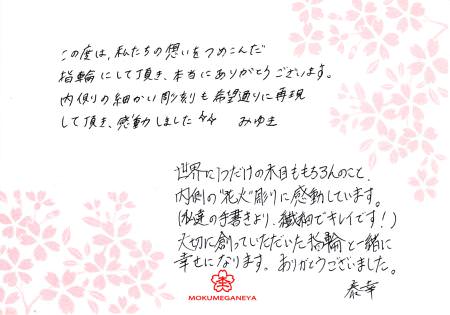 この度は、私たちの想いをつめこんだ
指輪にして頂き、本当にありがとうございます。
内側の細かい彫刻も希望通りに再現
して頂き、感動しました みゆき
世界に1つだけの木目ももちろんのこと、
内側の"花火"彫りに感動しています。
(私達の手書きより、繊細でキレイです！)
大切に創っていただいた指輪と一緒に
幸せになります。ありがとうございました。
泰幸
MOKUMEGANEYA